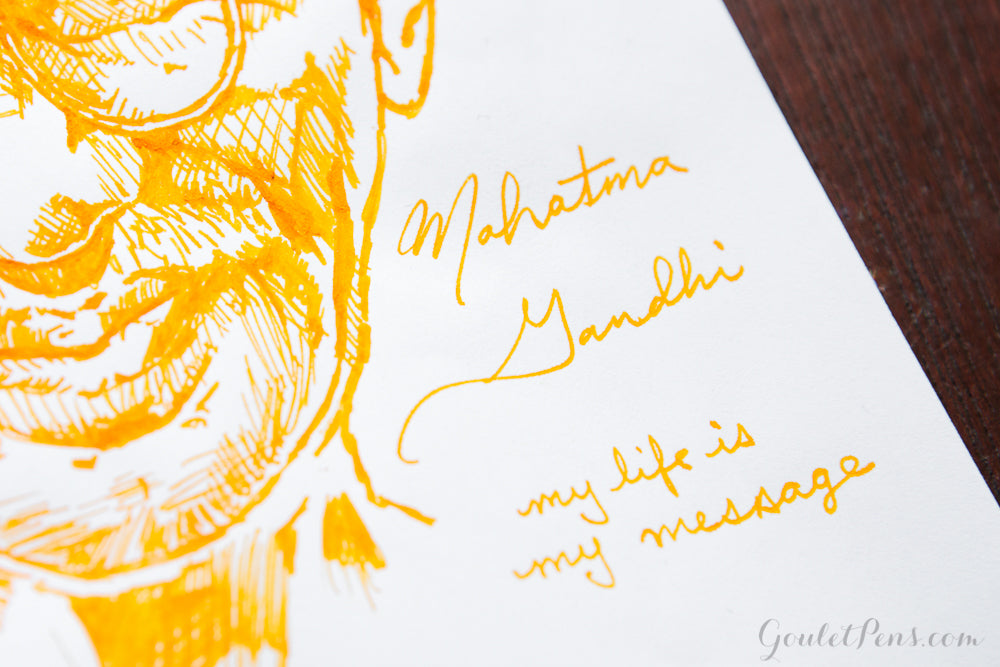 Mahatma
Gandhi
my life is
my message
GouletPens.com